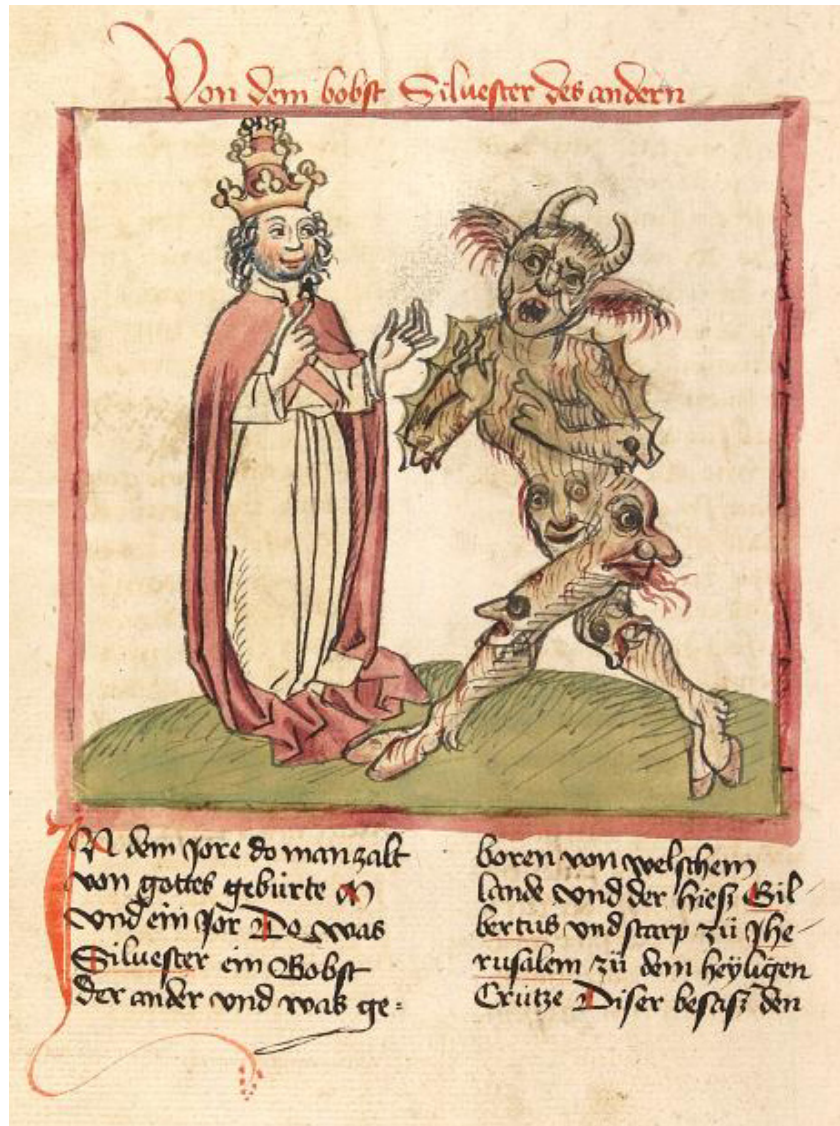 Von dem bobst Siluester des andern
IN dem Jore do man zalt
von gottes gebürte M
vnd ein Jor Do was
Siluester ein Bobst
der ander vnd was ge=
boren von welschem
lande vnd der hiesz Gil
bertus vnd starp zü Jhe
rusalem zü dem heyligen
Crütze Diser besasz den